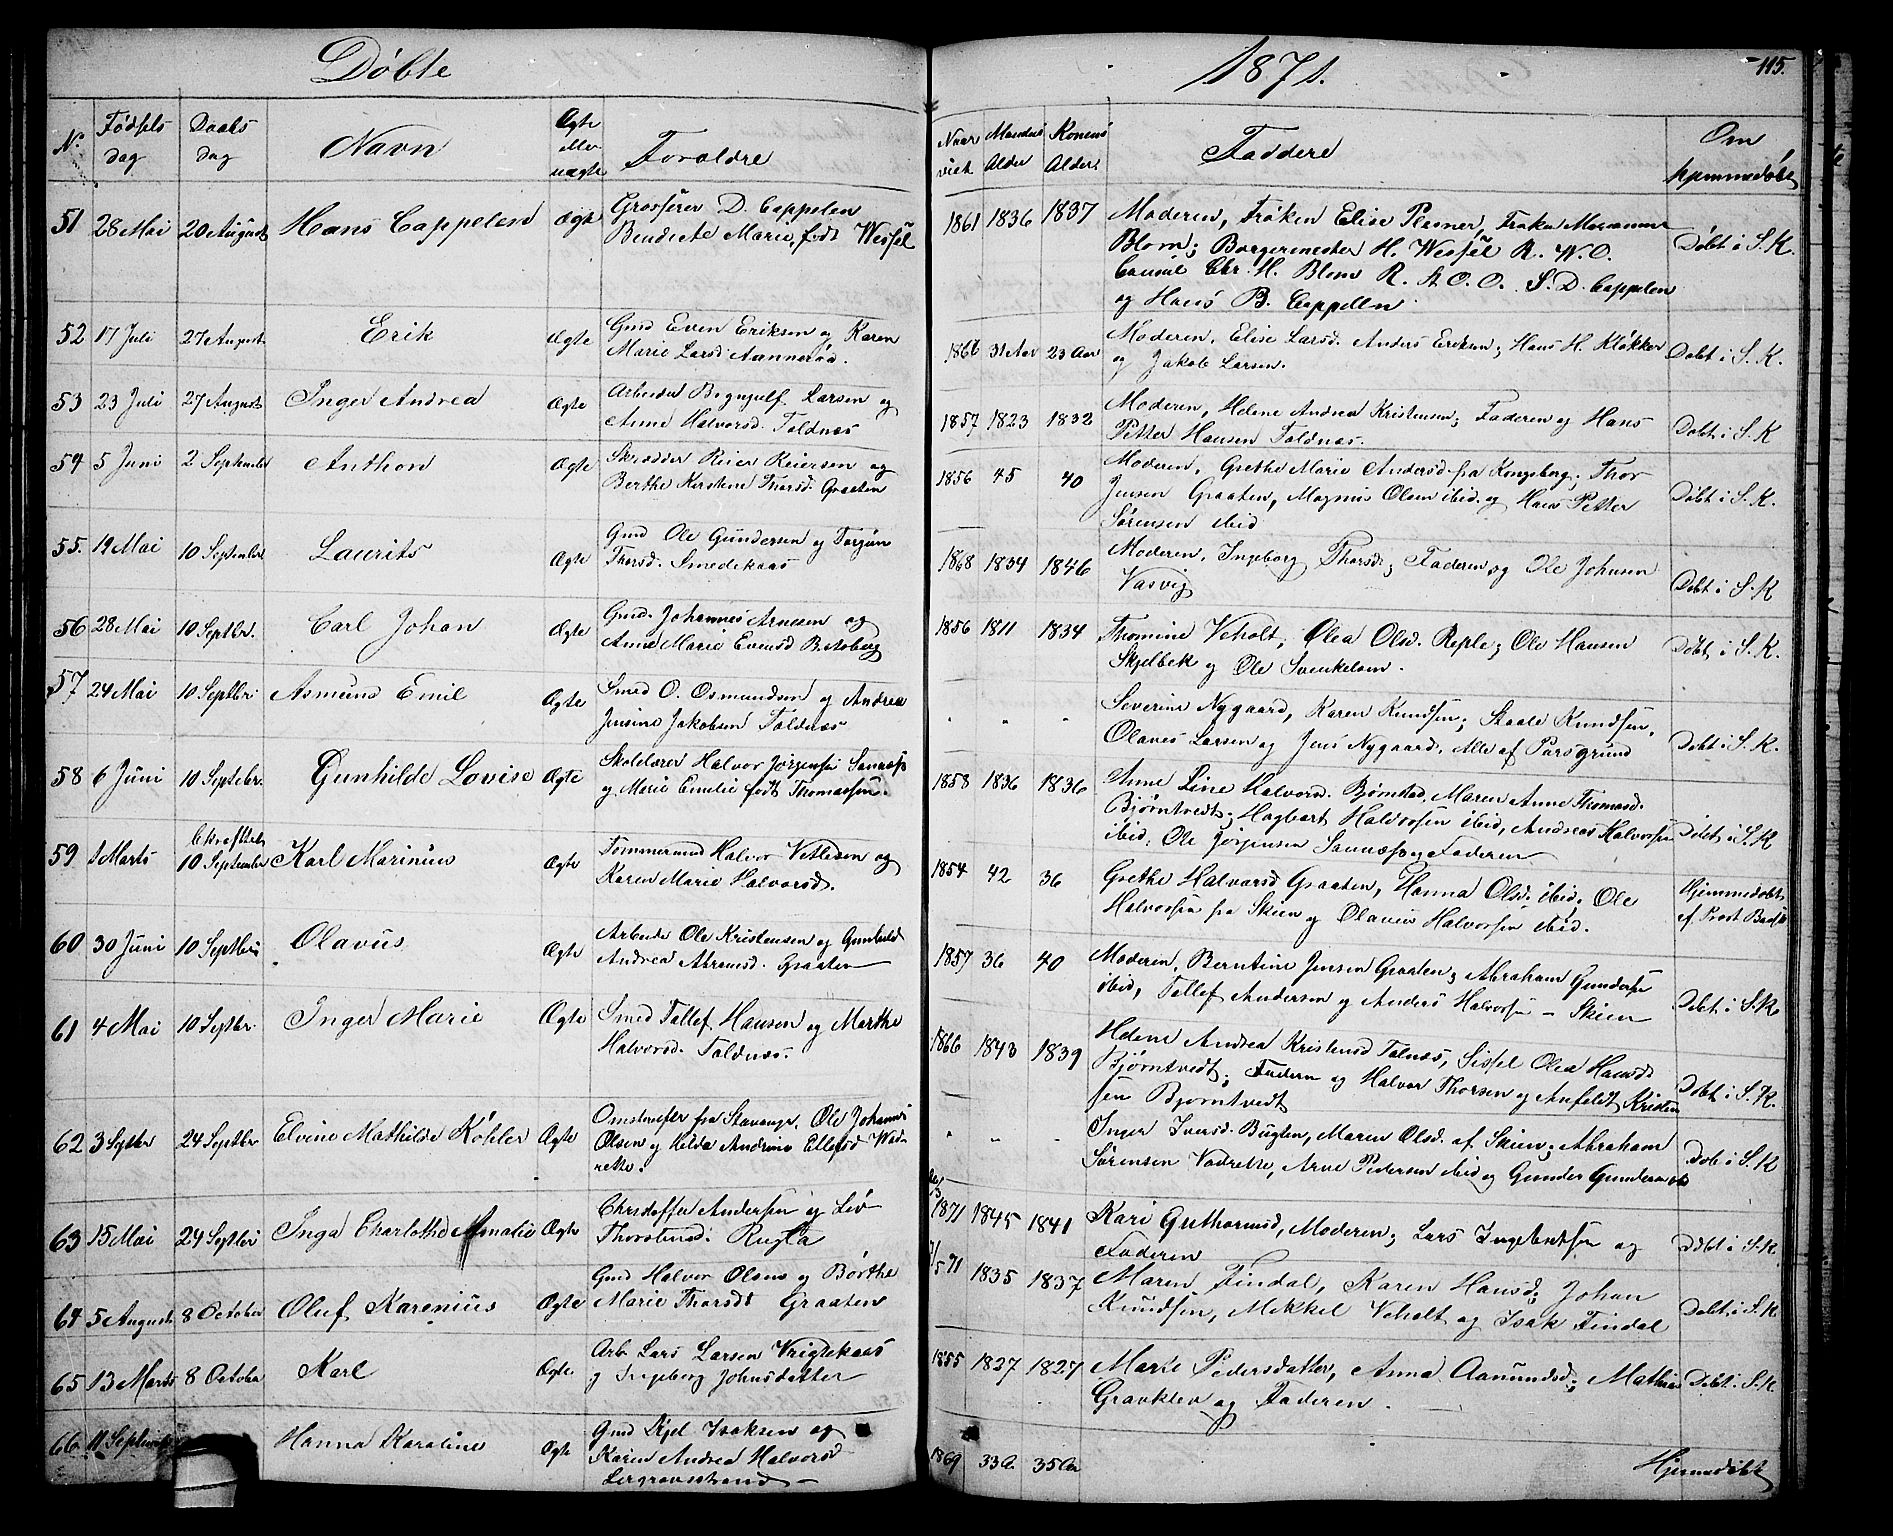 Døbte
1871.
115.
No. Fødsels dag Daabs dag Navn Ægte eller uægte Forældre Naar viet Mandens Alder Konens Alder Faddere Om hjemmedøbt
51 28 Mai 20 August Hans Cappelen Ægte Grosserer D. Cappelen
Benedicte Marie, født Wessel
1861 1836 1837 Moderen, Frøken Elise Plesner, Frøken Marianne
Blom; Borgermester H. Wessel R. W. O.
Consul Chr. H. Blom R. St. O. O. S. D. Cappelen
og Hans B. Cappelen. Døbt i S. K.
52 17 Juli 27 August Erik Ægte Gmd Even Eriksen og Karen
Marie Larsd. Aannerød.
31 Aar 23 Aar Moderen, Elise Larsd. Anders Eriksen; Hans H. Kløkker
og Jakob Larsen. Døbt i S. K.
53 23 Juli 27 August Inger Andrea Ægte Arbeider Larsen og
Anne Halvorsd. Foldnæs
1857 1823 1832 Moderen, Helene Andrea Kristensen; Faderen og Hans
Petter Hansen Foldnæs. Døbt i S. K
54 5 Juni 2 September Anthon Ægte Skrædder Reier Reiersen og
Berthe Kirstine Thorsd. Graaten
1856 45 40 Moderen, Grethe Marie Andersd fra Kongsberg; Thor
Jensen Graaten, Magnus Olsen ibid. og Hans Petter
Sørensen ibid Døbt i S. K.
55. 19 Mai 10 September Laurits Ægte Gmd Ole Gundersen og Torgun
Thorsd. Smedekaas
1868 1834 1846 Moderen, Ingeborg Thorsd; Faderen og Ole Johnsen
Vasvig Døbt i S. K
56 28 Mai 10 Septbr. Carl Johan Ægte Gmd. Johannes Arnesen og
Anne Marie Evensd
1856 1811 1834 Thomine Veholt, Olea Olsd. ; Ole Hansen
Skjelbek og Ole Svenkelsen. Døbt i S. K.
57 24 Mai 10 Septbr. Asmund Emil Ægte Smed O. Osmundsen og Andrea
Jensine Jakobsen Foldnæs
" " " Severine Nygaard, Karen Knudsen; Staale Knudsen,
Olaves Larsen og Jens Nygaard. Alle af Porsgrund Døbt i S. K.
58 6 Juni 10 Septebr. Gunhilde Lovise Ægte Skolelærer Halvor Jørgensen
og Marie Emilie født Thomassen.
1858 1836 1836 Anne Line Halvorsd. Bjørnstad, Maren Anne Thomasd.
Bjørntvedt; Hagbart Halvorsen ibid, Andreas Halvorsen
ibid, Ole Jørgensen og Faderen Døbt i S. K
59 1 Marts bekræftet 10 September Karl Marinius Ægte Tømmermand Halvor Vetlesen og
Karen Marie Halvorsd.
1854 42 36 Grethe Halvorsd Graaten, Hanna Olsd. ibid. Ole
Halvorsen fra Skien og Olaves Halvorsen ibid. Hjemmedøbt
af Prost
60 30 Juni 10 Septbr Olavus Ægte Arbeider Ole Kristensen og Gunhild
Andrea Abramsd. Graaten
1857 36 40 Moderen, Berntine Jensen Graaten; Abraham Gundersen
ibid, Tollef Andersen og Anders Halvorsen – Skien Døbt i S. K.
61 4 Mai 10 Septbr. Inger Marie Ægte Smed Tollef Hansen og Marthe
Halvorsd. Foldnæs.
1866 1843 1839 Helene Andrea Kristensd Folnæs, Sissel Olea Hansd.
Bjørntvedt; Faderen og Halvor Thorsen og Anfeldt Kristen
sen Bjørntvedt Døbt i S. K.
62 3 Septbr 24 Septbr Elvine Mathilde Köhler Ægte fra Stavanger, Ole Johannes
Olsen og Hilda Andrine Ellefsd
" " " Inger Iversd. Bugten, Maren Olsd. af Skien; Abraham
Sørensen Vadrette, Arne Pedersen ibid og Gunder Gundersen ibid Døbt i S. K
63 15 Mai 24 Septbr Inga Charlotte Amalie Ægte Christoffer Andersen og Liv
Thorstensd. Rugla
1871 1845 1841 Kari Guthormsd, Moderen; Lars Ingebretsen og
Faderen Døbt i S. K
64 5 August 8 October Oluf Karenius Ægte Gmd Halvor Olsen og Børthe
Marie Thorsdt Graaten
71 1835 1837 Maren Findal, Karen Hansd; Johan
Knudsen, Mikkel Veholt og Isak Findal Døbt i S. K
65 13 Marts 8 October Karl Ægte Arb. Lars Larsen Vrigtekaas
og Ingeborg Johnsdatter
1855 1827 1827 Marie Pedersdatter, Anna Aanundsd; Mathias
Gravklev og Faderen. Døbt i S. K
66 11 September Hanna Karoline Ægte Gmd Kjel Isaksen og
Karen Andrea Halvorsd
Lergravsstrand
1869 33 A. 35 Aar Hjemmedøbt